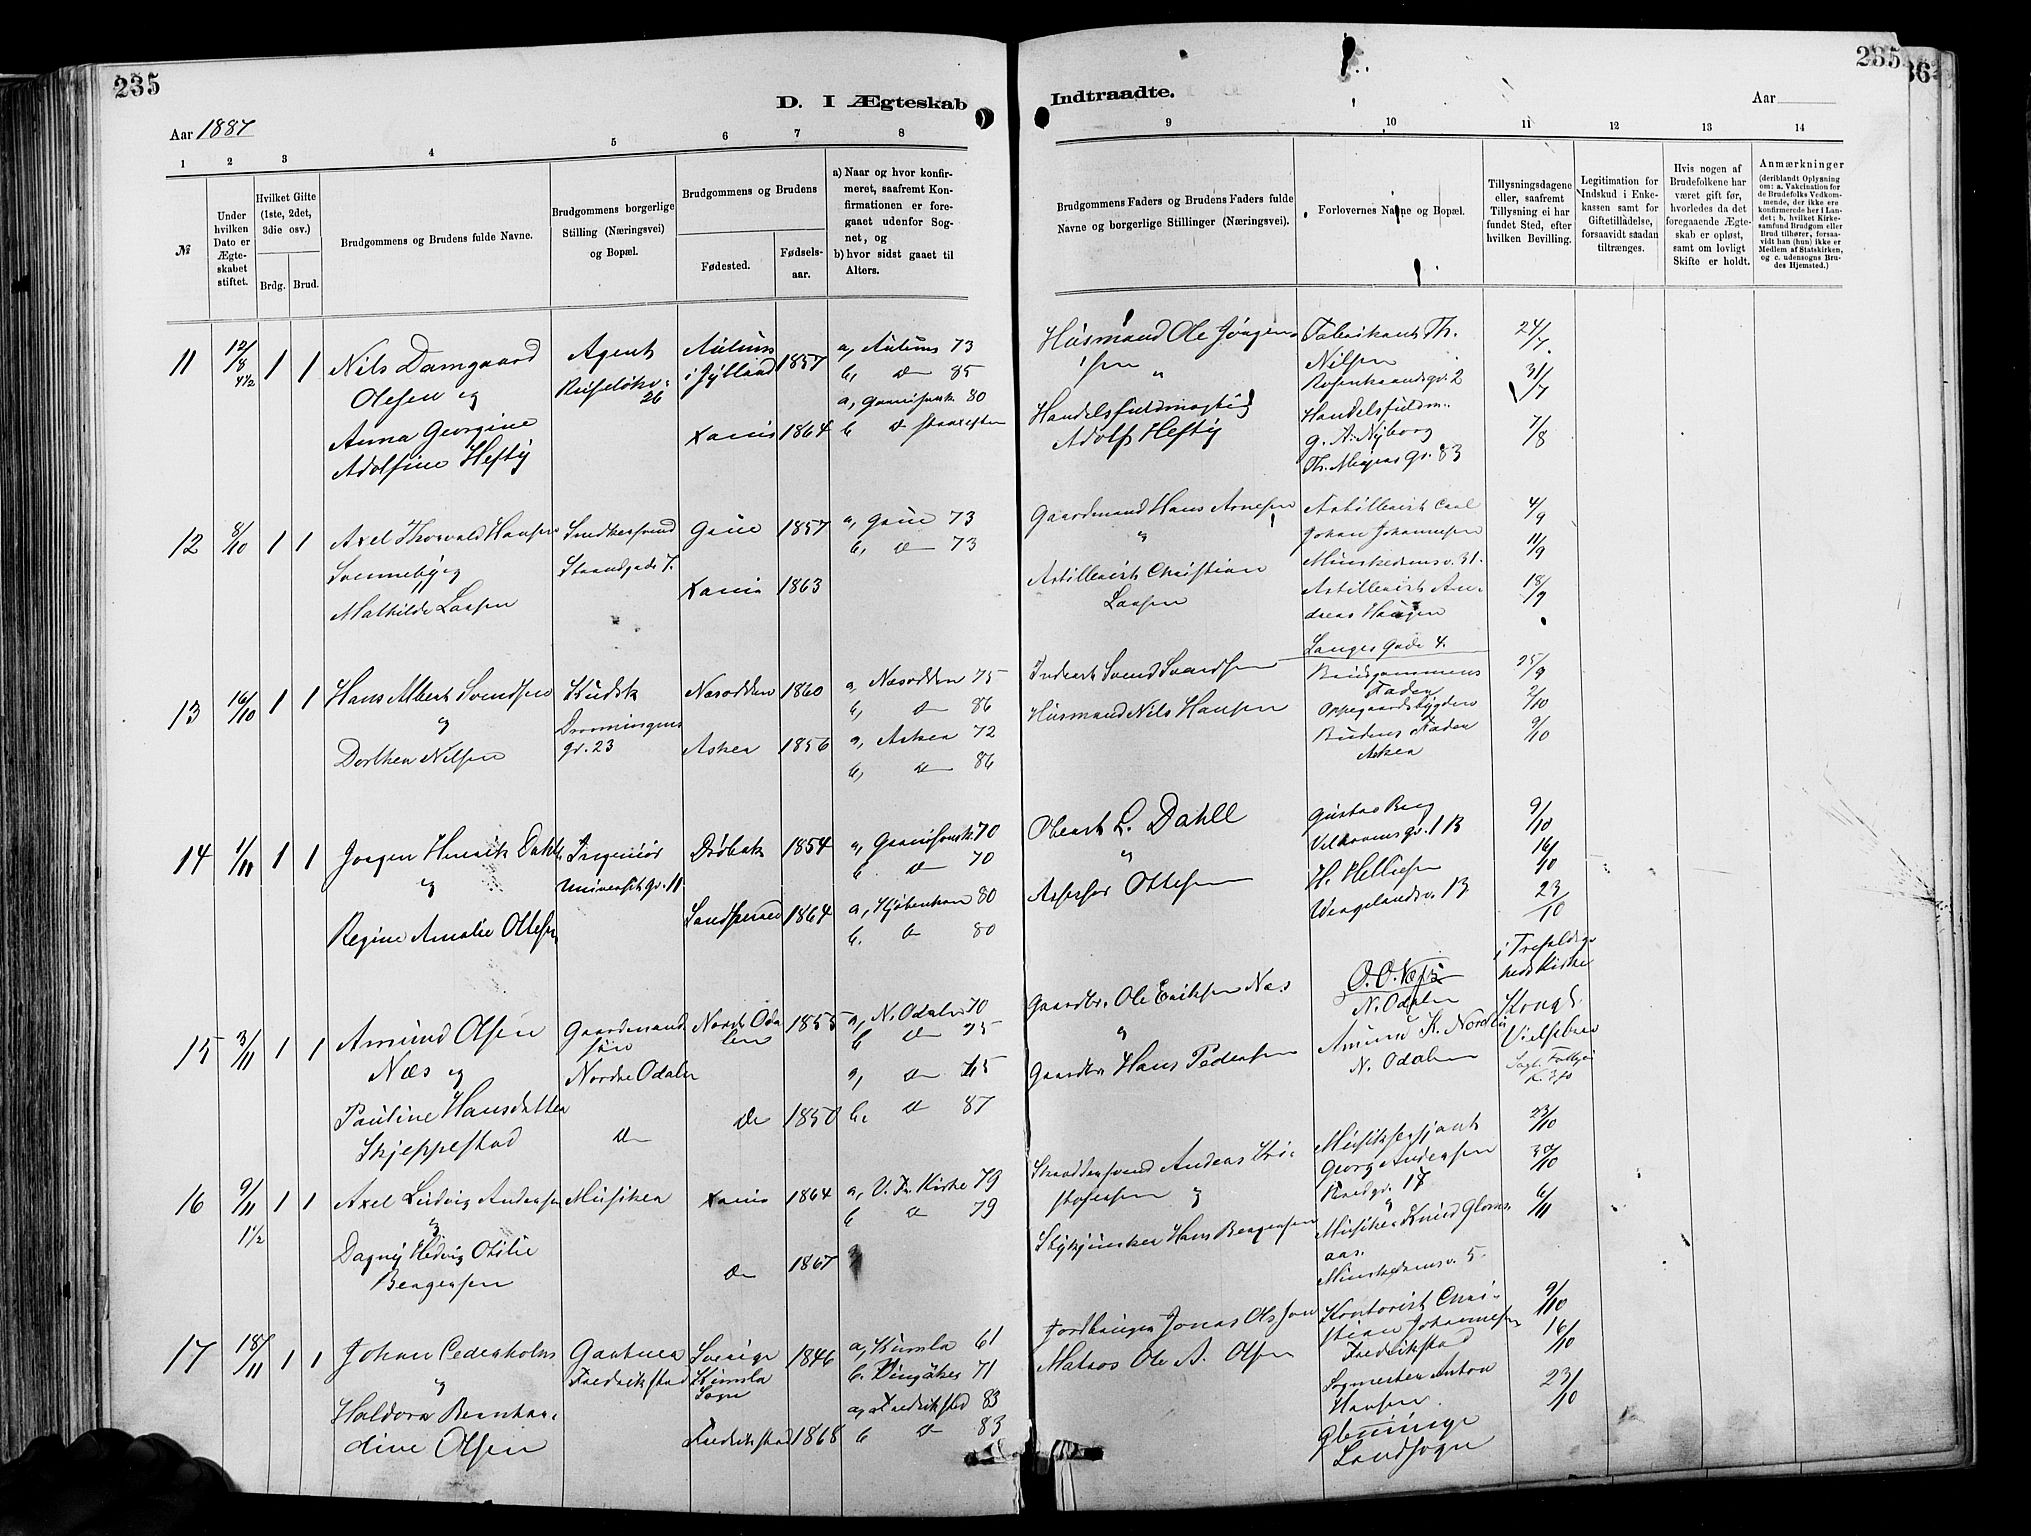 235
D. I Ægteskab
Aar 1887
1 2 3 4 5 6 7 8
№
Under hvilken Dato er Ægteskabet stiftet.
Hvilket Gifte (1ste, 2det, 3die osv.)
Brdg. Brud.
Brudgommens og Brudens fulde Navne.
Brudgommens borgerlige Stilling (Næringsvei) og Bopæl.
Brudgommens og Brudens
Fødested.
Fødsels-aar.
a) Naar og hvor konfir-
meret, saafremt Kon-
firmationen er fore-
gaaet udenfor Sog-
net, og
b) hvor sidst gaaet til
Alters.
11 12/8 4½ 1 1
Nils Damgaard
Olesen og
Anna Georgine
Adolfine Heftÿ
Agent
26
i Jylland 1857
1864
a, 73
b, do 85
a, 80
b do
12 8/10 1 1
Axel Thorvald Hansen
Svennebÿ og
Mathilde Larsen
Snedkersvend
Strandgade 7.
1857
1863
a, 73
b, do 73
13 16/10 1 1
Hans Albert Svendsen
og
Dorthea Nilsen
Kudsk
Dronningens
gt. 23
Næsodden 1860
Asker 1856
a, Næsodden 75
b, do 86
a, Asker 72
b, do 86
14 1/11 1 1
Jørgen Henrik Dahl
og
Regine Amalie Ottesen
Ingeniør
Universitetsgt. 11
Drøbak 1854
1864
a, Garnisonsk. 70
b. do 70
a, Kjøbenhavn 80
b. do 80
15 3/11 1 1
Amund Olsen
Næs og
Pauline Hansdatter
Skjeppestad
Gaardmand
søn
Nordre Odalen
do
Nordre Oda
len
1855
do 1850
a, N. Odalen 70
b do 75
a, do 65
b. do 87
16 9/11 1½ 1 1
Axel Ludvig Andersen
og
Dagnÿ Hedvig Otilie
Bergersen
Musiker
1864
do 1867
a, V. Fr. Kirke 79
b do 79
17 18/11 1 1
Johan Cederholm
og
Haldora Bernhar-
dine Olsen
Gartner
Fredrikstad
Sverige
Kumla
Sogn
1846
Fredrikstad 1868
a, Kumla 61
b. Vingåker 71
a, Fredrikstad 83
b do 83
Indtraadte.
235
36
Aar
9 10 11 12 13 14
Brudgommens Faders og Brudens Faders fulde Navne og borgerlige Stillinger (Næringsvei).
Forlovernes Navne og Bopæl.
Tillysningsdagene eller, saafremt Tillysning ei har fundet Sted, efter hvilken Bevilling.
Legitimation for Indskud i Enke-kassen samt for Giftetilladelse, forsaavidt saadan tiltrænges.
Hvis nogen af Brudefolkene har været gift før, hvorledes da det foregaaende Ægte-skab er opløst, samt om lovligt Skifte er holdt.
Anmærkninger
(deriblandt Oplysning om: a. Vakcination for de Brudefolks Vedkom-mende, der ikke ere konfirmerede her i Lan-det; b. hvilket Kirke-samfund Brudgom eller Brud tilhører, forsaa-vidt han (hun) ikke er Medlem af Statskirken, og c. udensogns Bru-des Hjemsted.)
Husmand Ole Jørgen-
sen
"
Handelsfuldmægtig
Adolf Heftÿ
Fabrikant Th.
Nilsen
Rosenkrandsgt. 2
Handelsfuldm.
G. A. Nÿborg
Th. Meyers Gt. 83
24/7
31/7
7/8
Gaardmand Hans Arnesen
og
Artillerist Christian
Larsen
Artillerist Carl
Johan Johannesen
Munkedamsv. 31.
Artillerist An-
dreas Haugen
Langes Gade 4.
4/9
11/9
18/9
Inderst Svend Svendsen
Husmand Nils Hansen
Brudgommens
Fader
Oppegaardsbygden
Brudens Fader
Asker
25/9
2/10
9/10
Oberst L. Dahll
og
Assessor Ottesen
Gustav Berg
Welhavens gt. 1 B
H. Helliesen
Wergelandsv. 1 B
9/10
16/10
23/10
i Trefoldig-
heds Kirke
Gaardbr. Ole Eriksen Næs
og
Gaardbr. Hans Pedersen
O. O. Næss
N. Odalen
N. Odalen
Kongl.
Skræddersvend Anders Kri-
stofersen og
Stykjunker Hans Bergersen
Musiksersjant
Georg Andersen
17
Musiker Knud Gloms-
aas.
Munkedamsv. 5.
23/10
30/10
6/11
Jordbruger Jonas Olsson
Matros Ole A. Olsen
Kontorist Chri-
stian Johannesen
Fredrikstad
Sagmester Anton
Hansen
Glemminge
Landsogn
9/10
16/10
23/10